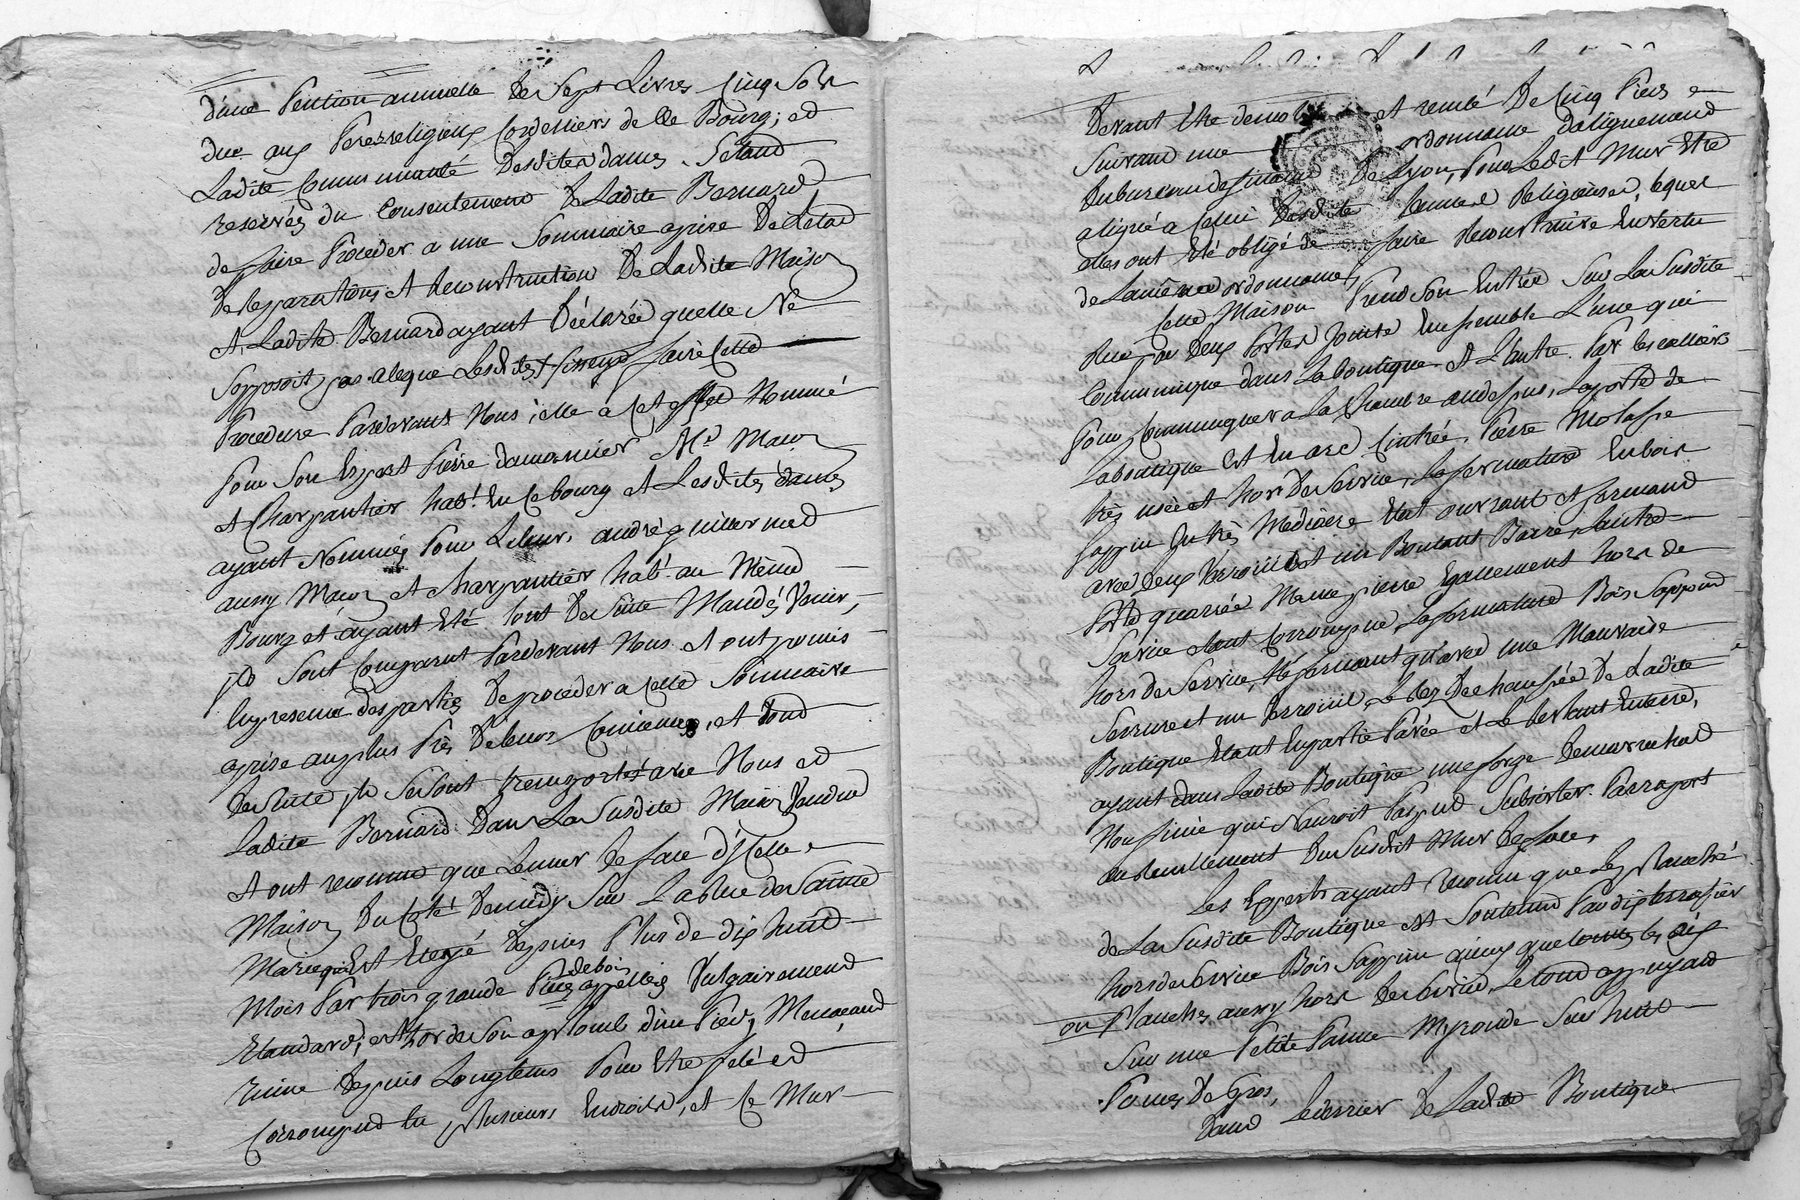 d'une Pention annuelle de Sept Livres Cinq Sols
due aux Peres religieux Cordelliers de Ce Bourg; et
Ladite Communauté Desdites dames. S'etant
reservés du Consentement De Ladite Bernard
de faire Proceder a une Sommaire aprise De L'etat
De Reparations et Reconstruction De Ladite Maison
et Ladite Bernard ayant Déclaréé quelle Ne
Sopposoit pas aceque Lesdites fissent faire Cette
Procedure Pardevant Nous, elle a Cet effet Nommé
Pour Son Expert Pierre damarnier Me Maçon
et Charpantier habt. En Ce bourg et Lesdites dames
ayant Nommés Pour Leleur, andré quillermet
aussy Maçon et Charpantier habt. au Même
Bourg et ayant Eté tout De Suite Mandés Venir,
ils Sont Comparut Pardevant Nous et ont promis
En presence des parties De proceder a Cette Sommaire
aprise au plus Près De leur Conscience, et tout
De Suite ils Se Sont transportés avec Nous et
Ladite Bernard Dans La Susdite Maison Vendue
et ont reconnu que Le mur De face d'jCelle
Maison Du Coté De midy Sur La Rue de Sainte
Marie qui Est Etayé Depuis Plus de dix huit
Mois Par trois grande Piece de bois appellés Vulgairement
Etandard, est hors de Son applomb d'un Pied, Menaçant
ruine Depuis Longtems Pour Etre felé et
Corrompu En plusieurs Endroits, et Ce Mur
Devant être demoli et reculé De Cinq Pieds
Suivant une ordonnance D'alignement
Du bureau des finances De Lyon, Pour Ledit Mur Etre
aligné a Celui Desdite Dames Religieuses, lequel
elles ont Eté obligé de faire Reconstruire En vertu
de La même ordonnance,
Cette Maison Prend Son Entrée Sur La Susdite
Rue par Deux Portes Jointe Ensemble L'une qui
Communique dans La boutique et L'autre Par les calliers
Pour Communiquer a La Chambre audessus, La porte de
La boutique est En arc Cintrée, Pierre Molasse
très usée et hors De Service, La fermature En bois
Sappin En très Mediocre Etat ouvrant et fermant
avec Deux Verroüil et un Boutant Barre, L'autre
Porte quarrée Meme pierre Egallement hors de
Service étant Corrompue, La fermature Bois Sappin
hors de Service, Ne fermant qu'avec une Mauvaise
Serrure et un Verroüil, Le Rez De chaussée De Ladite
Boutique Etant En partie Pavée et Le Restant En terre,
ayant dans Ladite Boutique une forge De marechal
Non finie qui Nauroit Pas pud Subsister Parraport
au Reculement Du Susdit Mur De face,
Les Experts ayant Reconnu que Les Planché
de La Susdite Boutique est Soutenu Par dix
hors de Service Bois Sappin ainsy que toutes les aix
ou Planches aussy hors De Service, Le tout appuyant
Sur une Petite Panne Myronde Sur huit
Pouces De Gros,
Dans Le Derrier De Ladite Boutique